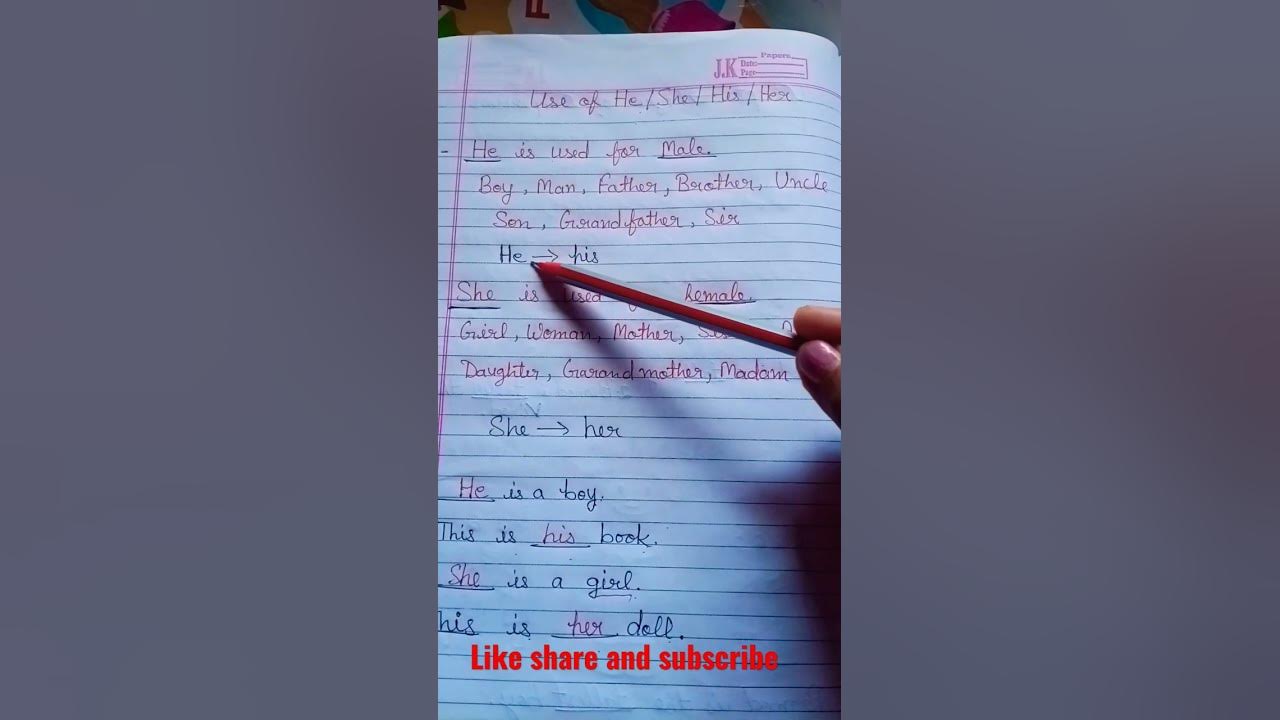 Papers
J.K Date:
Page
Use of He/She/His/Her
- He is used for Male.
Boy, Man, Father, Brother, Uncle
Son, Grandfather, Sir
He → his
She is used female.
Girl, Woman, Mother,
Daughter, Garandmother, Madam
She → her
He is a boy.
This is his book.
She is a girl.
his is her doll.
Like share and subscribe